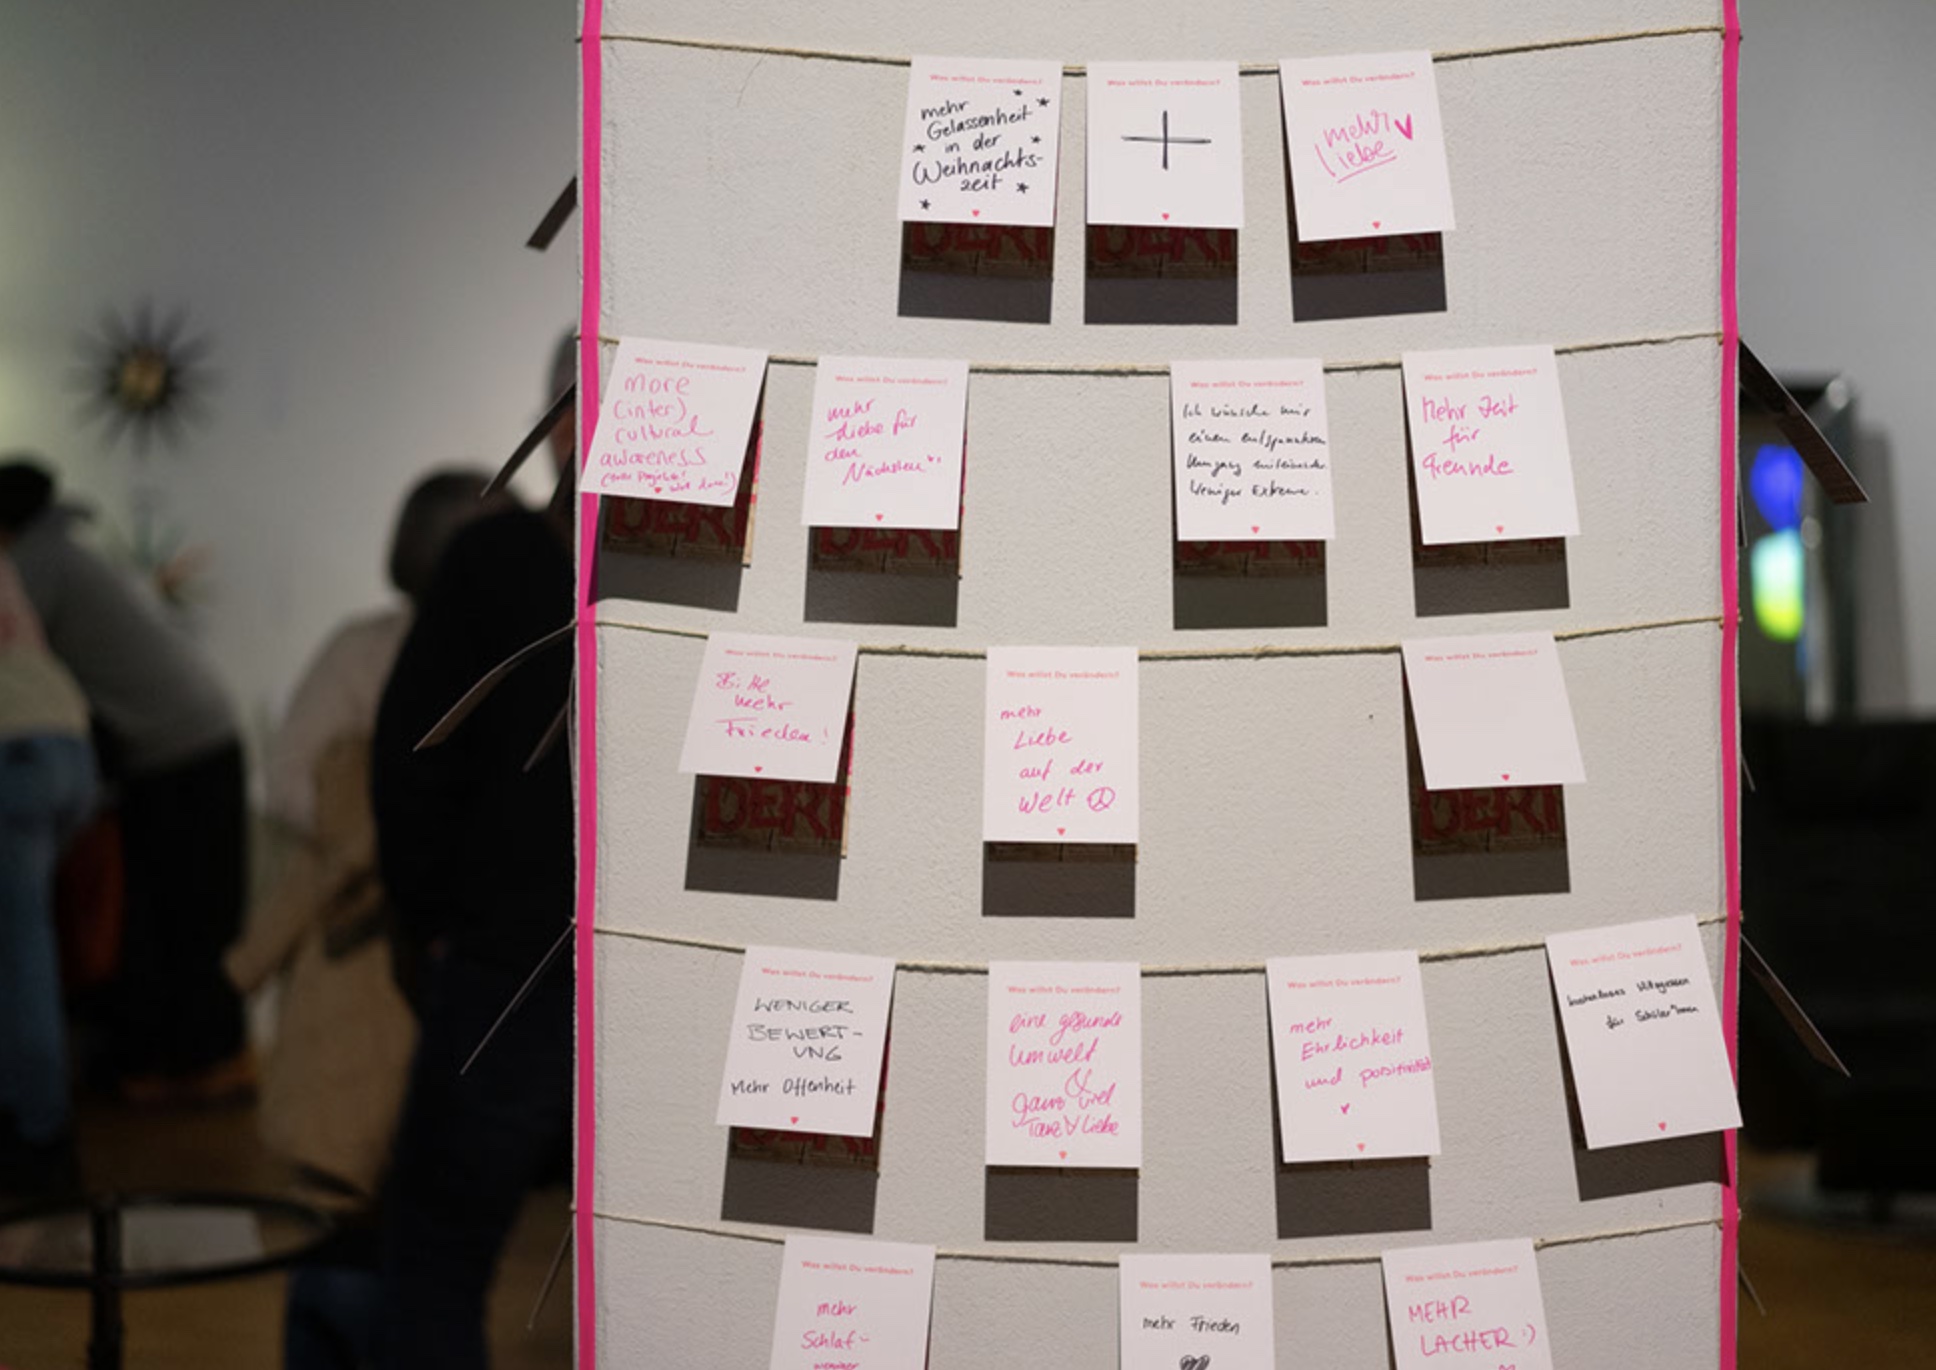 Was willst Du verändern?
mehr
Gelassenheit
in der
Weihnachts-
zeit
Was willst Du verändern?
+
Was willst Du verändern?
mehr
liebe
Was willst Du verändern?
more
(inter)
cultural
awareness
Was willst Du verändern?
mehr
Liebe für
den
Nächsten
Was willst Du verändern?
Ich wünsche mir
einen entspannten
Umgang miteinander.
Weniger Extreme.
Was willst Du verändern?
Mehr Zeit
für
Freunde
Was willst Du verändern?
Bitte
mehr
Frieden!
Was willst Du verändern?
mehr
Liebe
auf der
Welt
Was willst Du verändern?
Was willst Du verändern?
WENIGER
BEWERT-
UNG
Mehr Offenheit
Was willst Du verändern?
eine gesunde
Umwelt
&
ganz viel
Tanz Liebe
Was willst Du verändern?
mehr
Ehrlichkeit
und positivität
Was willst Du verändern?
kostenloses Mittagessen
für Schüler*innen
Was willst Du verändern?
mehr
Schlaf
weniger
Was willst Du verändern?
mehr Frieden
Was willst Du verändern?
MEHR
LACHER :)